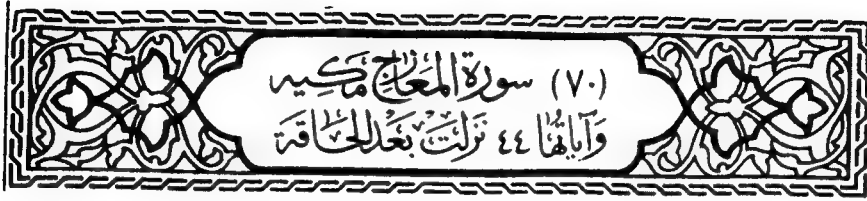 (٧٠) سورة المعارج مكيه
وآياتها ٤٤ نزلت بعد الحاقة